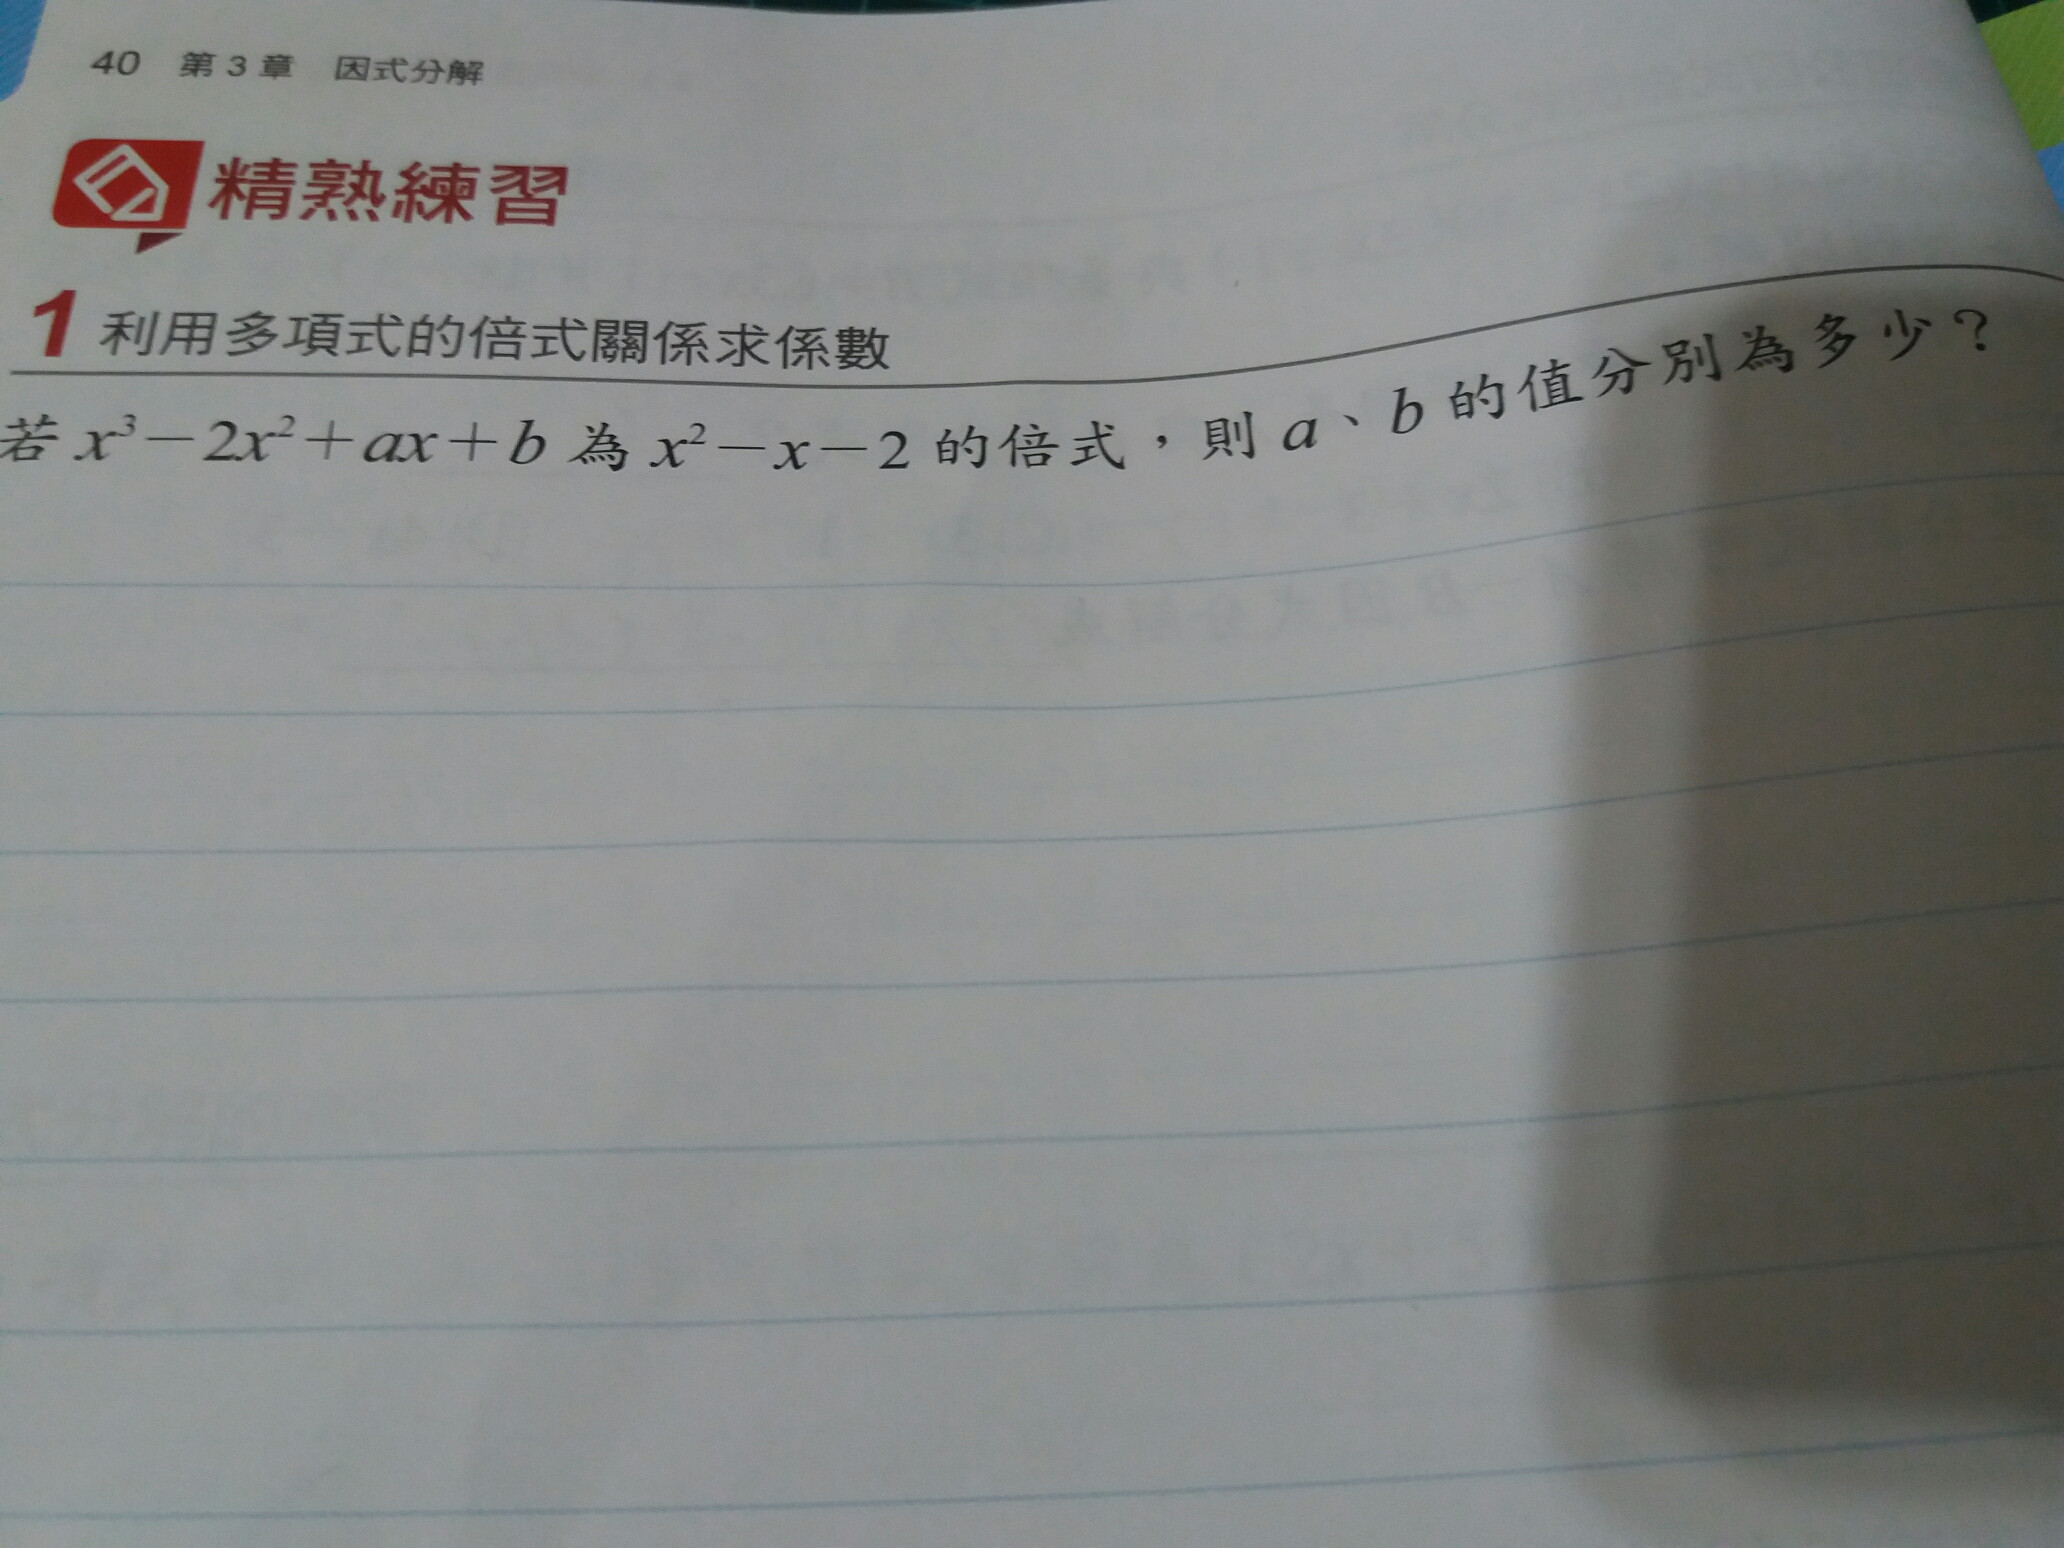 40 第3章 因式分解
精熟練習
1 利用多項式的倍式關係求係數
若 x³－2x²＋ax＋b 為 x²－x－2 的倍式，則 a、b 的值分別為多少？